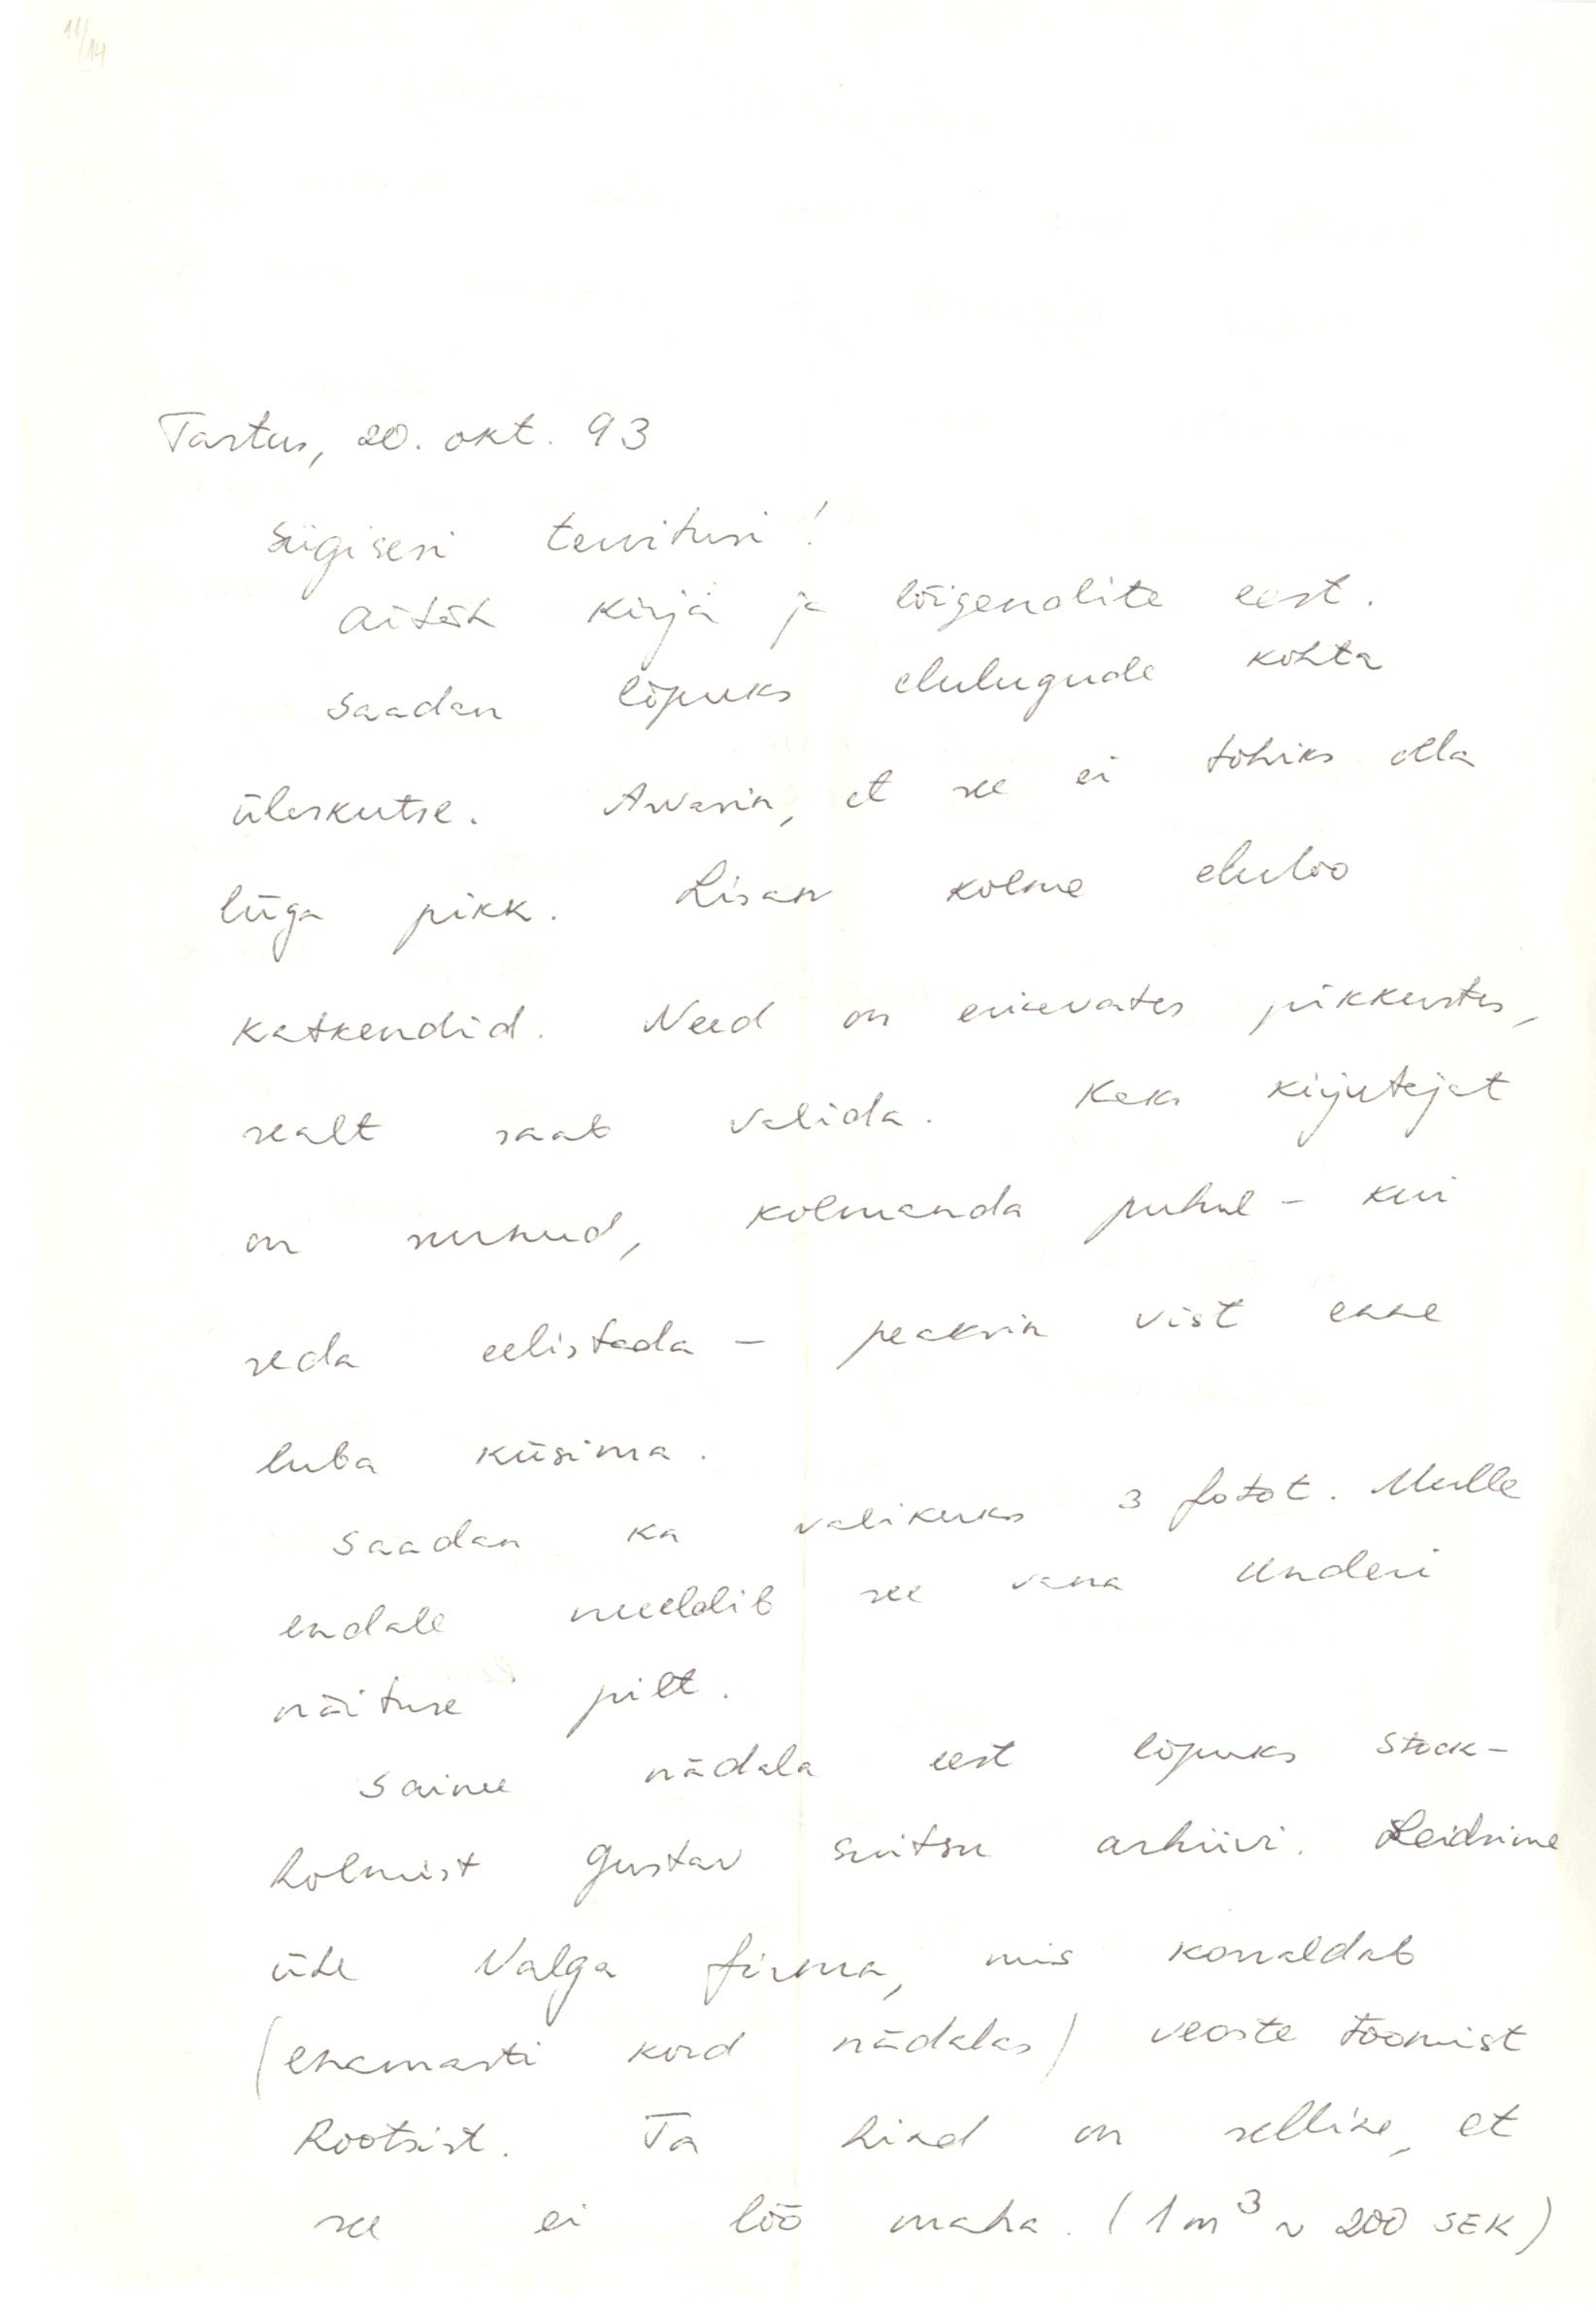 11/14
Tartus, 20. okt. 93
Sügisesi tervitusi!
Aitäh kirja ja lõigendite eest.
Saadan lõpuks elulugude kohta
üleskutse. Arvasin, et see ei tohiks olla
liiga pikk. Lisan kolme eluloo
katkendid. Need on erievates pikkustes,
sealt saab valida. Kaks kirjutajat
on surnud, kolmanda puhul - kui
seda eelistada - peaksin vist enne
luba küsima.
Saadan ka valikuks 3 fotot. Mulle
endale meeldib see vana Underi
näituse pilt.
Saime nädala eest lõpuks Stock-
holmist Gustav Suitsu arhiivi. Leidsime
ühe Valga firma, mis korraldab
(enamasti kord nädalas) veoste toomist
Rootsist. Ta hind on selline, et
see ei löö maha. (1 m³ ~ 200 SEK)